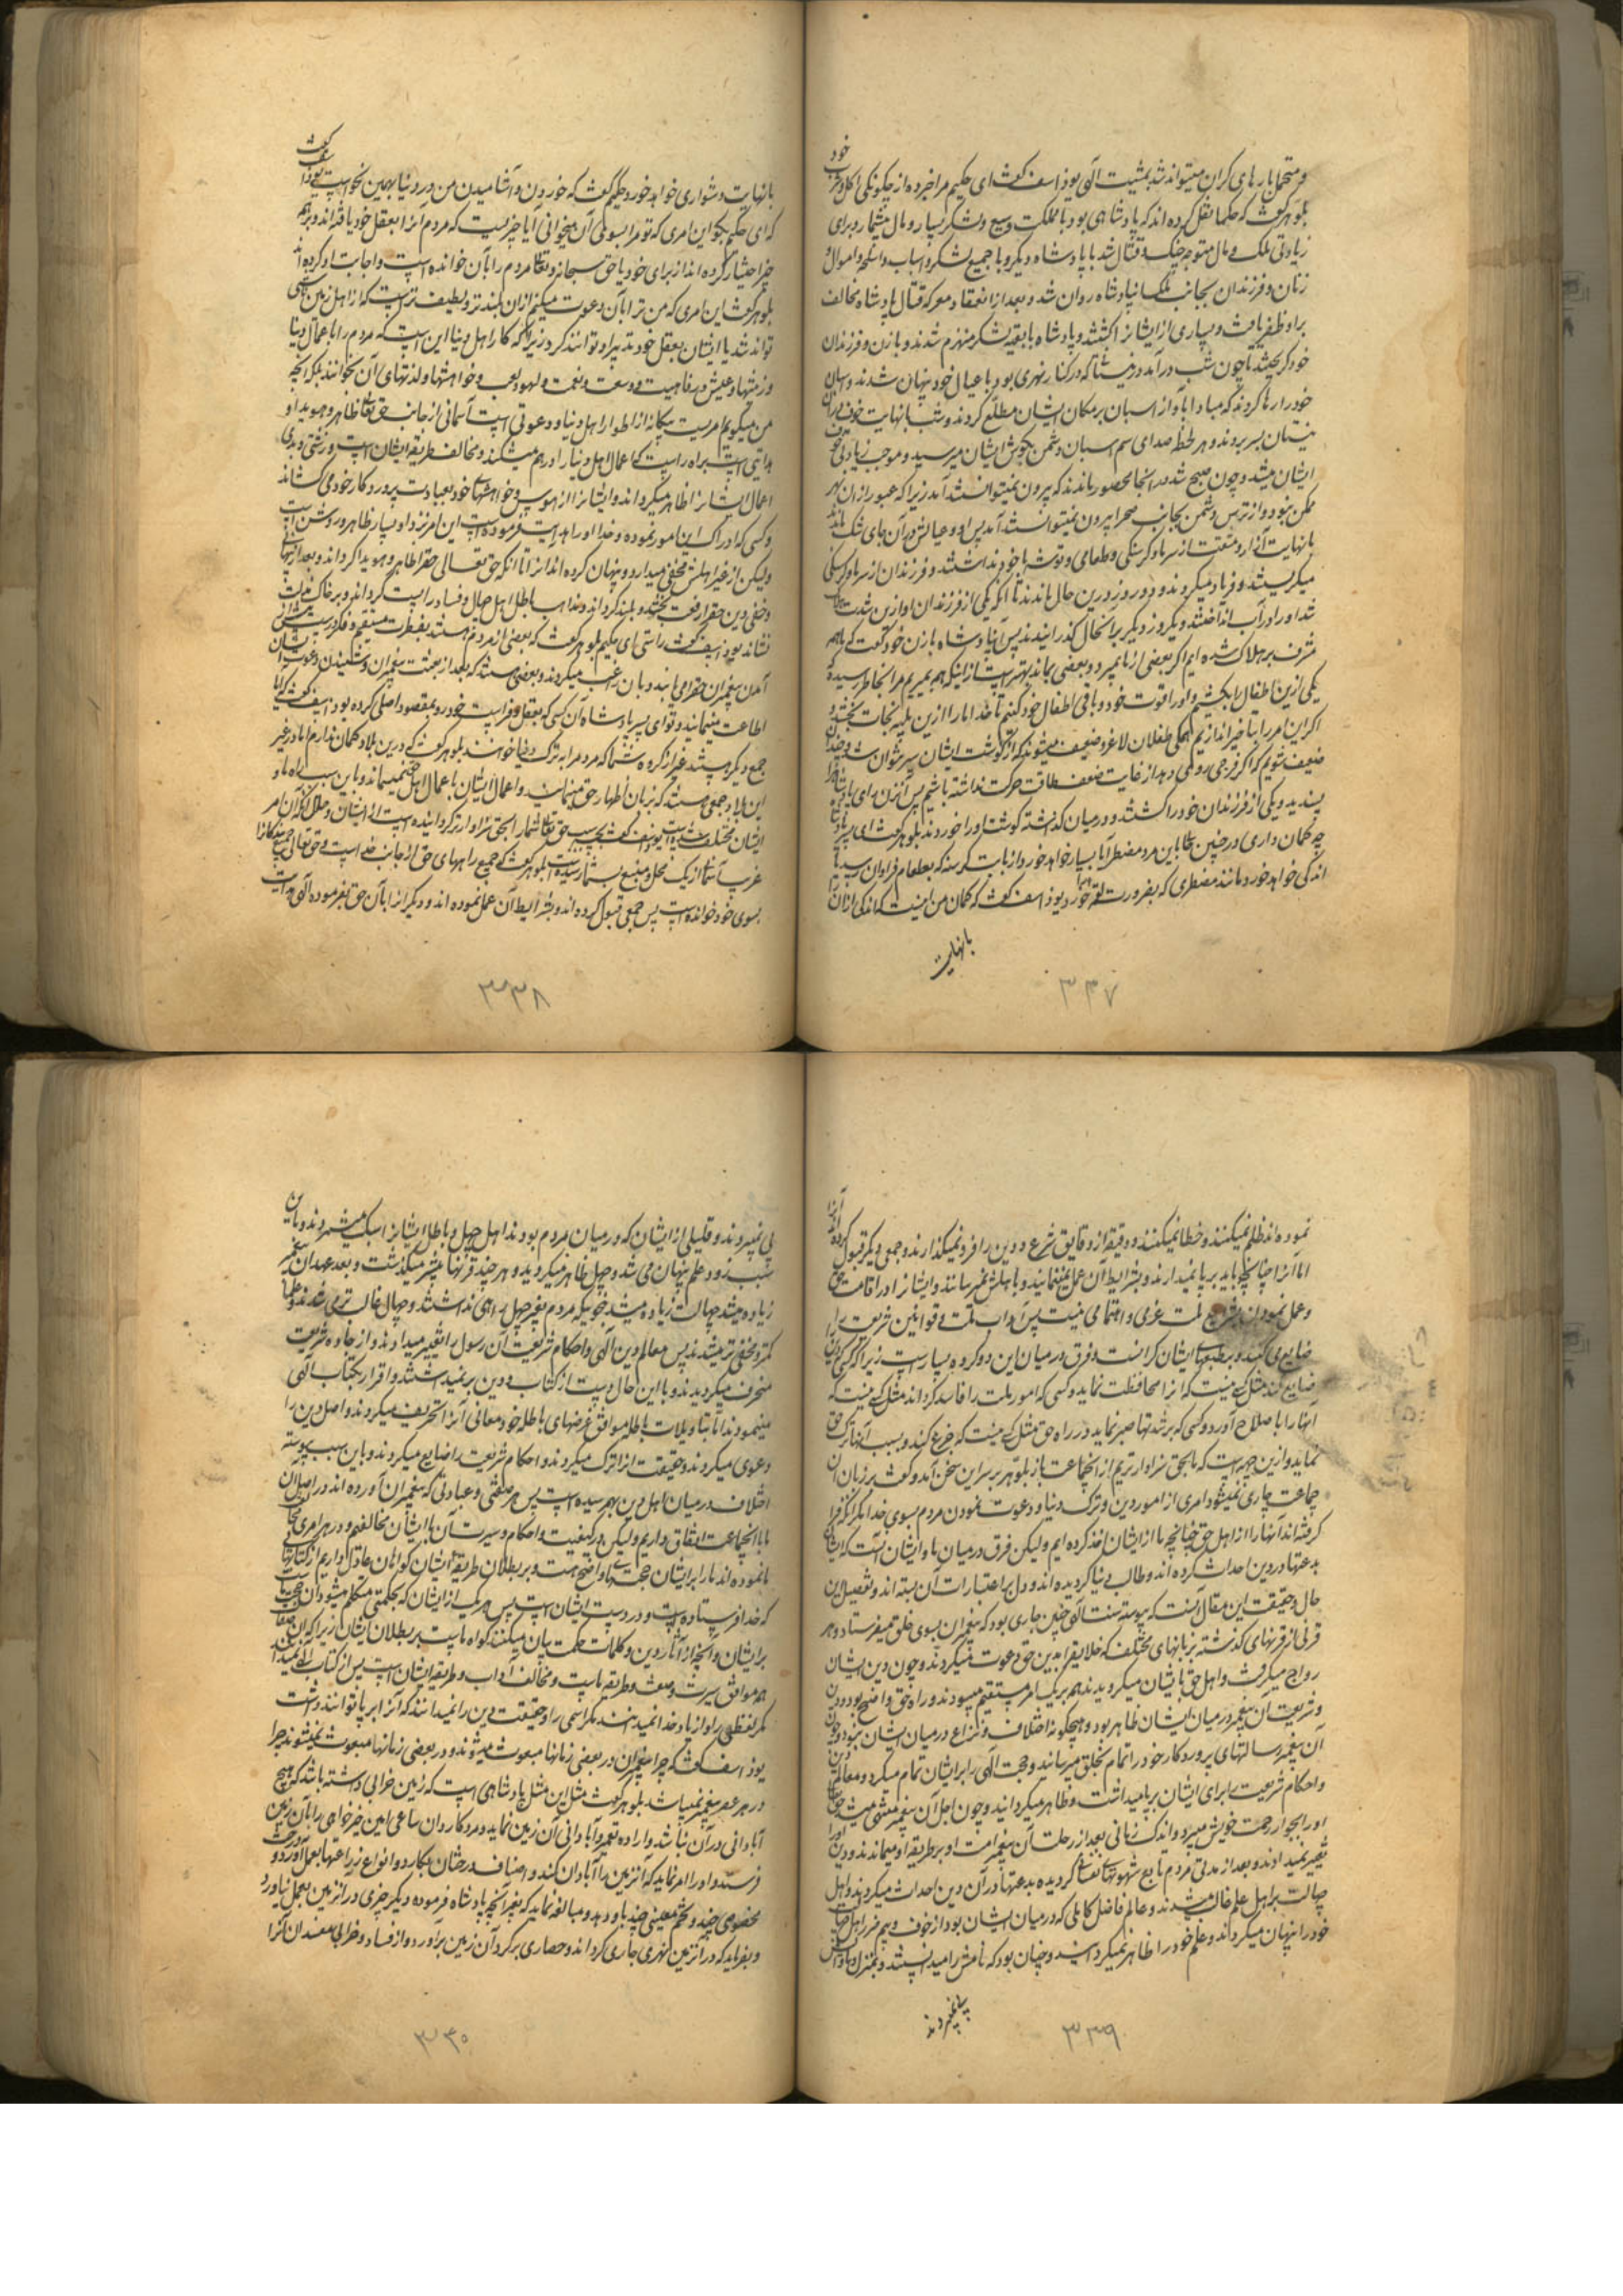 و متحمل بارهای گران میتواند شد بمشیت الهی یوذاسف گفت ای حکیم مرا خبر ده از چگونگی اکل و شرب خود
بلوهر گفت که حکما نقل کرده‌اند که پادشاهی بود با مملکت وسیع و لشکر بسیار و مال بیشمار و برای
زیادتی ملک و مال متوجه جنگ و قتال شد با پادشاه دیگر و با جمیع لشکر و اسباب و اسلحه و اموال و
زنان و فرزندان بجانب مملکت آن پادشاه روان شد و بعد از انعقاد معرکه قتال پادشاه مخالف
بر او ظفر یافت و بسیاری از ایشانرا کشتند و پادشاه با بقیه لشکر منهزم شدند و با زن و فرزندان
خود گریختند تا چون شب درآمد در نیستانی که در کنار نهری بود با عیال خود پنهان شدند و اسبان
خود را رها کردند که مبادا بآواز اسبان بر مکان ایشان مطلع گردند و شب با نهایت خوف در آن
نیستان بسر بردند و هر لحظه صدای سم اسبان دشمن بگوش ایشان میرسید و موجب زیادتی خوف
ایشان میشد و چون صبح شد در آنجا محصور ماندند که بیرون نمیتوانستند آمد زیرا که عبور از آن نهر
ممکن نبود و از ترس دشمن بجانب صحرا بیرون نمیتوانستند آمد پس او و عیالش در آن جای تنگ ماندند
با نهایت آزار و مشقت از سرما و گرسنگی و طعامی و توشه با خود نداشتند و فرزندان از سرما و گرسنگی
میگریستند و فریاد میکردند و دو روز درین حال ماندند تا آنکه یکی از فرزندان او ازین شدت هلاک
شد او را در آب انداختند و یکروز دیگر براین حال گذرانیدند پس آن پادشاه با زن خود گفت که ما همه
مشرف بر هلاک شده‌ایم اگر بعضی از ما بمیرد و بعضی بماند بهتر است از اینکه همه بمیریم مرا بخاطر رسیده که
یکی ازین اطفال را بکشیم و او را قوت خود و باقی اطفال خود کنیم تا خدا ما را ازین بلیه نجات بخشد و
اگر این امر را بتأخیر اندازیم همگی طفلان لاغر و ضعیف میشوند که از گوشت ایشان سیر نتوان شد و چندان
ضعیف شویم که اگر فرجی روی دهد از غایت ضعف طاقت حرکت نداشته باشیم پس آن زن رای پادشاه را
پسندید و یکی از فرزندان خود را کشتند و در میان گذاشته گوشت او را خوردند بلوهر گفت ای پسر پادشاه
چه گمان داری در چنین حالی باین مرد مضطر آیا بسیار خواهد خورد از بابت گرسنه که بطعام فراوان رسد یا
اندکی خواهد خورد مانند مضطری که بضرورت لقمه خورد یوذاسف گفت که گمان من اینست که اندکی از آن را
با نهایت
۳۳۷
با نهایت دشواری خواهد خورد حکیم گفت که خوردن و آشامیدن من در دنیا بهمین نحو است یوذاسف گفت
که ای حکیم بگو این امری که تو مرا بسوی آن میخوانی آیا چیزیست که مردم آنرا بعقل خود یافته‌اند و بر همه
چیز اختیار کرده‌اند از برای خود یا حق سبحانه و تعالی مردم را بآن خوانده است و اجابت او کرده‌اند
بلوهر گفت این امری که من ترا بآن دعوت میکنم از آن بلندتر و لطیف‌تر است که از اهل زمین ناشی
تواند شد یا ایشان بعقل خود تدبیر او توانند کرد زیرا که کار اهل دنیا این است که مردم را باعمال دنیا
و زینتها و عیش و رفاهیت و وسعت و نعمت و لهو و لعب و خواهشها و لذتهای آن بخوانند بلکه آنچه
من میگویم امریست بیگانه از اطوار اهل دنیا و دعوتی است آسمانی از جانب حق تعالی ظاهر و هویدا و
هدایتی است براه راست که اعمال اهل دنیا را درهم میشکند و مخالف طریقه ایشان است و زشتی و بدی
اعمال ایشانرا ظاهر میگرداند و ایشانرا از هوس و خواهشهای خود بعبادت پروردگار خود می‌کشاند
و کسی که ادراک این امور نموده و خدا او را هدایت فرموده است این امر نزد او بسیار ظاهر و روشن است
ولیکن از غیر اهلش مخفی میدارد و پنهان کرده‌اند آنرا تا آنکه حق تعالی حق را ظاهر و هویدا گرداند و بعد از پنهانی
و خفی دین حق را رفعت بخشد و بلند گرداند و مذاهب باطل اهل جهل و فساد را پست گرداند و بر خاک مذلت
نشاند یوذاسف گفت راستی ای حکیم بلوهر گفت که بعضی از مردم هستند بفطرت مستقیم و فکر درست پیش از
آمدن پیغمبران حق را می‌یابند و بآن رغبت میکردند و بعضی هستند که بعد از بعثت پیغمبران و شنیدن دعوت ایشان
اطاعت مینمایند و تو ای پسر پادشاه آن کسی که بعقل و فراست خود رو بمقصود اصلی کرده بود یوذاسف گفت که آیا
جمع دیگر هستند غیر از گروه شما که مردم را بترک دنیا خوانند بلوهر گفت که درین بلاد گمان ندارم اما در غیر
این بلاد جمعی هستند که بزبان اظهار حق مینمایند و اعمال ایشان باعمال اهل حق نمیماند و باین سبب راه ما و
ایشان مختلف شده است یوذاسف گفت بچه سبب حق تعالی شما را بحق سزاوارتر گردانیده است از ایشان و حال آنکه آن امر
غریب آسمانی از یک محل و منبع بشما رسیده است بلوهر گفت که جمیع راههای حق از جانب خدا است و حق تعالی جمیع بندگانرا
بسوی خود خوانده است پس جمعی قبول کرده‌اند و بشرایط آن عمل نموده‌اند و دیگرانرا بآن حق بفرموده الهی هدایت
۳۳۸
نموده‌اند ظلم نمیکنند و خطا نمیکنند و دقیقه از دقایق شرع و دین را فرو نمیگذارند و جمعی دیگر قبول کرده‌اند آنرا
اما آنرا چنانچه باید برپا نمیدارند و بشرایط آن عمل نمینمایند و باهلش نمیرسانند و ایشانرا در اقامت حق
و عمل نمودن بشرایع ملت عزمی و اهتمامی نیست پس آداب ملت و قوانین شریعت را
ضایع می‌کنند و بر طبعهای ایشان گرانست و فرق در میان این دو گروه بسیار است زیرا که کسی که دین
ضایع کند مثل کسی نیست که آنرا محافظت نماید و کسی که امور ملت را فاسد گرداند مثل کسی نیست که
آنها را باصلاح آورد و کسی که بر شدتها صبر نماید در راه حق مثل کسی نیست که جزع کند و بسبب آنها ترک حق
نماید و ازین جهت است که ما بحق سزاوارتریم از آنجماعت باز بلوهر بر سر این سخن آمد و گفت بر زبان آن
جماعت جاری نمیشود امری از امور دین و ترک دنیا و دعوت نمودن مردم بسوی خدا مگر آنکه فرا
گرفته‌اند آنها را از اهل حق چنانچه ما از ایشان اخذ کرده‌ایم ولیکن فرق در میان ما و ایشان آنست که ایشان
بدعتها در دین احداث کرده‌اند و طالب دنیا گردیده‌اند و دل بر اعتبارات آن بسته‌اند و تفصیل این
حال و حقیقت این مقال آنست که پیوسته سنت الهی چنین جاری بود که پیغمبران بسوی خلق میفرستاد در هر
قرنی از قرنهای گذشته بزبانهای مختلف که خلایق را بدین حق دعوت میکردند و چون دین ایشان
رواج میگرفت و اهل حق بایشان میگرویدند همه بر یک امر مستقیم میبودند و راه حق واضح بود و دین
و شریعت آن پیغمبر در میان ایشان ظاهر بود و هیچگونه اختلاف و نزاع در میان ایشان نبود و چون
آن پیغمبر رسالتهای پروردگار خود را تمام بخلق میرسانید و حجت الهی را بر ایشان تمام میکرد و معالم دین
و احکام شریعت را برای ایشان برپا میداشت و ظاهر میگردانید و چون اجل آن پیغمبر منتهی میشد حق تعالی
او را بجوار رحمت خویش میبرد و اندک زمانی بعد از رحلت آن پیغمبر امت او بر طریقه او میماندند و دین او را
تغییر نمیدادند و بعد از مدتی مردم تابع شهوتهای نفسانی گردیده بدعتها در آن دین احداث میکردند و اهل
جهالت بر اهل علم غالب میشدند و عالم فاضل کاملی که در میان ایشان بود از خوف و بیم ضرر اهل ضلالت
خود را پنهان میگرداند و علم خود را ظاهر نمیگردانید و چنان بود که نامش را میدانستند و بمنزل و ماوایش
پی نمیبردند
۳۳۹
پی نمیبردند و قلیلی از ایشان که در میان مردم بودند اهل جهل و باطل ایشانرا سبک میشمردند و باین
سبب زود علم پنهان می‌شد و جهل ظاهر میگردید و هر چند قرنها بیشتر میگذشت و بعد عهد آن پیغمبر
زیاده میشد جهالت زیاده میشد بنحویکه مردم بغیر جهل راهی نداشتند و جهال غالب‌تر می‌شدند و علما
کمتر و مخفی‌تر میشدند پس معالم دین الهی و احکام شریعت آن رسول را تغییر میدادند و از جاده شریعت
منحرف میگردیدند و با این حال دست از کتاب و دین برنمیداشتند و اقرار بکتاب الهی
مینمودند اما بتأویلات باطله موافق غرضهای باطله خود معانی آنرا تحریف میکردند و اصل دین را
دعوی میکردند و حقیقت آنرا ترک میکردند و احکام شریعت را ضایع میکردند و باین سبب پیوسته
اختلاف در میان اهل دین بهم رسیده است پس هر صفتی و عبادتی که پیغمبران آورده‌اند در اصل آن
ما با آنجماعت اتفاق داریم ولیکن در کیفیت و احکام و سیرت آن با ایشان مخالفیم و در هر امری مخالفت
ما نموده‌اند ما را بر ایشان حجتهای واضح هست و بر بطلان طریقه ایشان گواهان عادل داریم از کتابهایی
که خدا فرستاده است و در دست ایشان است پس هر یک از ایشان که بحکمتی متکلم میشود آن حجت ماست
بر ایشان و آنچه از آثار دین و کلمات حکمت بیان میکنند گواه ماست بر بطلان ایشان زیرا که آن صفات
همه موافق سیرت و صفت و طریقه ماست و مخالف آداب و طریقه ایشان است پس از کتاب الهی نمیدانند
مگر لفظی را و از یاد خدا نمیدانند مگر اسمی را و حقیقت دین را نمیدانند که آنرا برپا توانند داشت
یوذاسف گفت که چرا پیغمبران در بعضی زمانها مبعوث میشوند و در بعضی زمانها مبعوث نمیشوند چرا
در هر عصر پیغمبر نمیباشد بلوهر گفت مثل این مثل پادشاهی است که زمین خرابی داشته باشد که هیچ
آبادانی در آن نباشد و اراده تعمیر و آبادانی آن زمین نماید و مرد کاردان ساعی امین خیرخواهی را بآن زمین
فرستد و او را امر نماید که آن زمین را آبادان کند و اصناف درختان بکارد و انواع زراعتها بعمل آورد و درخت
مخصوصی چند و تخم معینی چند باو دهد و مبالغه نماید که بغیر آنچه پادشاه فرموده دیگر چیزی در آن زمین بعمل نیاورد
و بفرماید که در آن زمین نهری جاری گرداند و حصاری بر گرد آن زمین برآورد و از فساد و خرابی مفسدان آنرا
۳۴۰